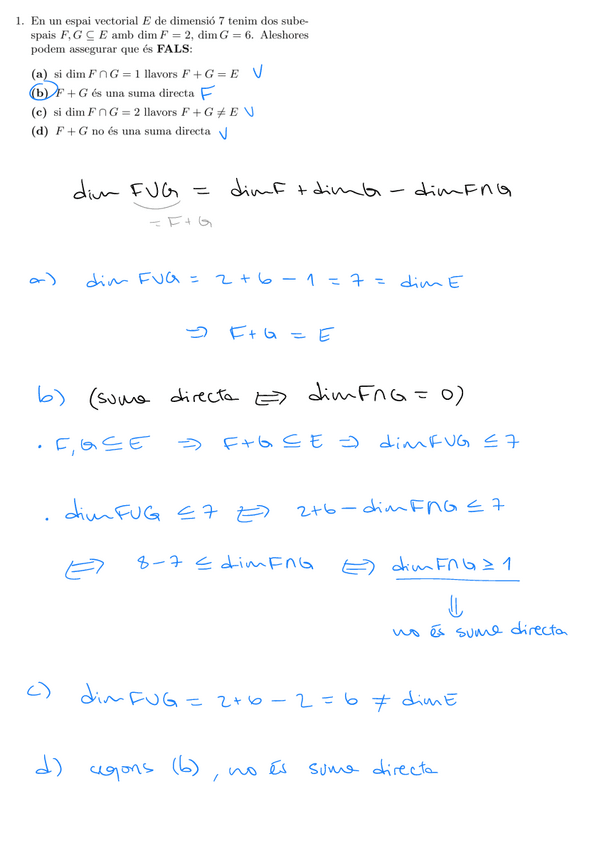 1. En un espai vectorial E de dimensió 7 tenim dos sube-
spais F, G ⊆ E amb dim F = 2, dim G = 6. Aleshores
podem assegurar que és FALS:
(a) si dim F ∩ G = 1 llavors F + G = E V
(b) F + G és una suma directa F
(c) si dim F ∩ G = 2 llavors F + G ≠ E V
(d) F + G no és una suma directa V
dim F∪G = dim F + dim G - dim F∩G
= F + G
a) dim F∪G = 2 + 6 - 1 = 7 = dim E
⇒ F + G = E
b) (suma directa ⇔ dim F∩G = 0)
· F, G ⊆ E ⇒ F+G ⊆ E ⇒ dim F∪G ≤ 7
· dim F∪G ≤ 7 ⇔ 2+6 - dim F∩G ≤ 7
⇔ 8-7 ≤ dim F∩G ⇔ dim F∩G ≥ 1
⇓
no és suma directa
c) dim F∪G = 2+6 - 2 = 6 ≠ dim E
d) segons (b), no és suma directa